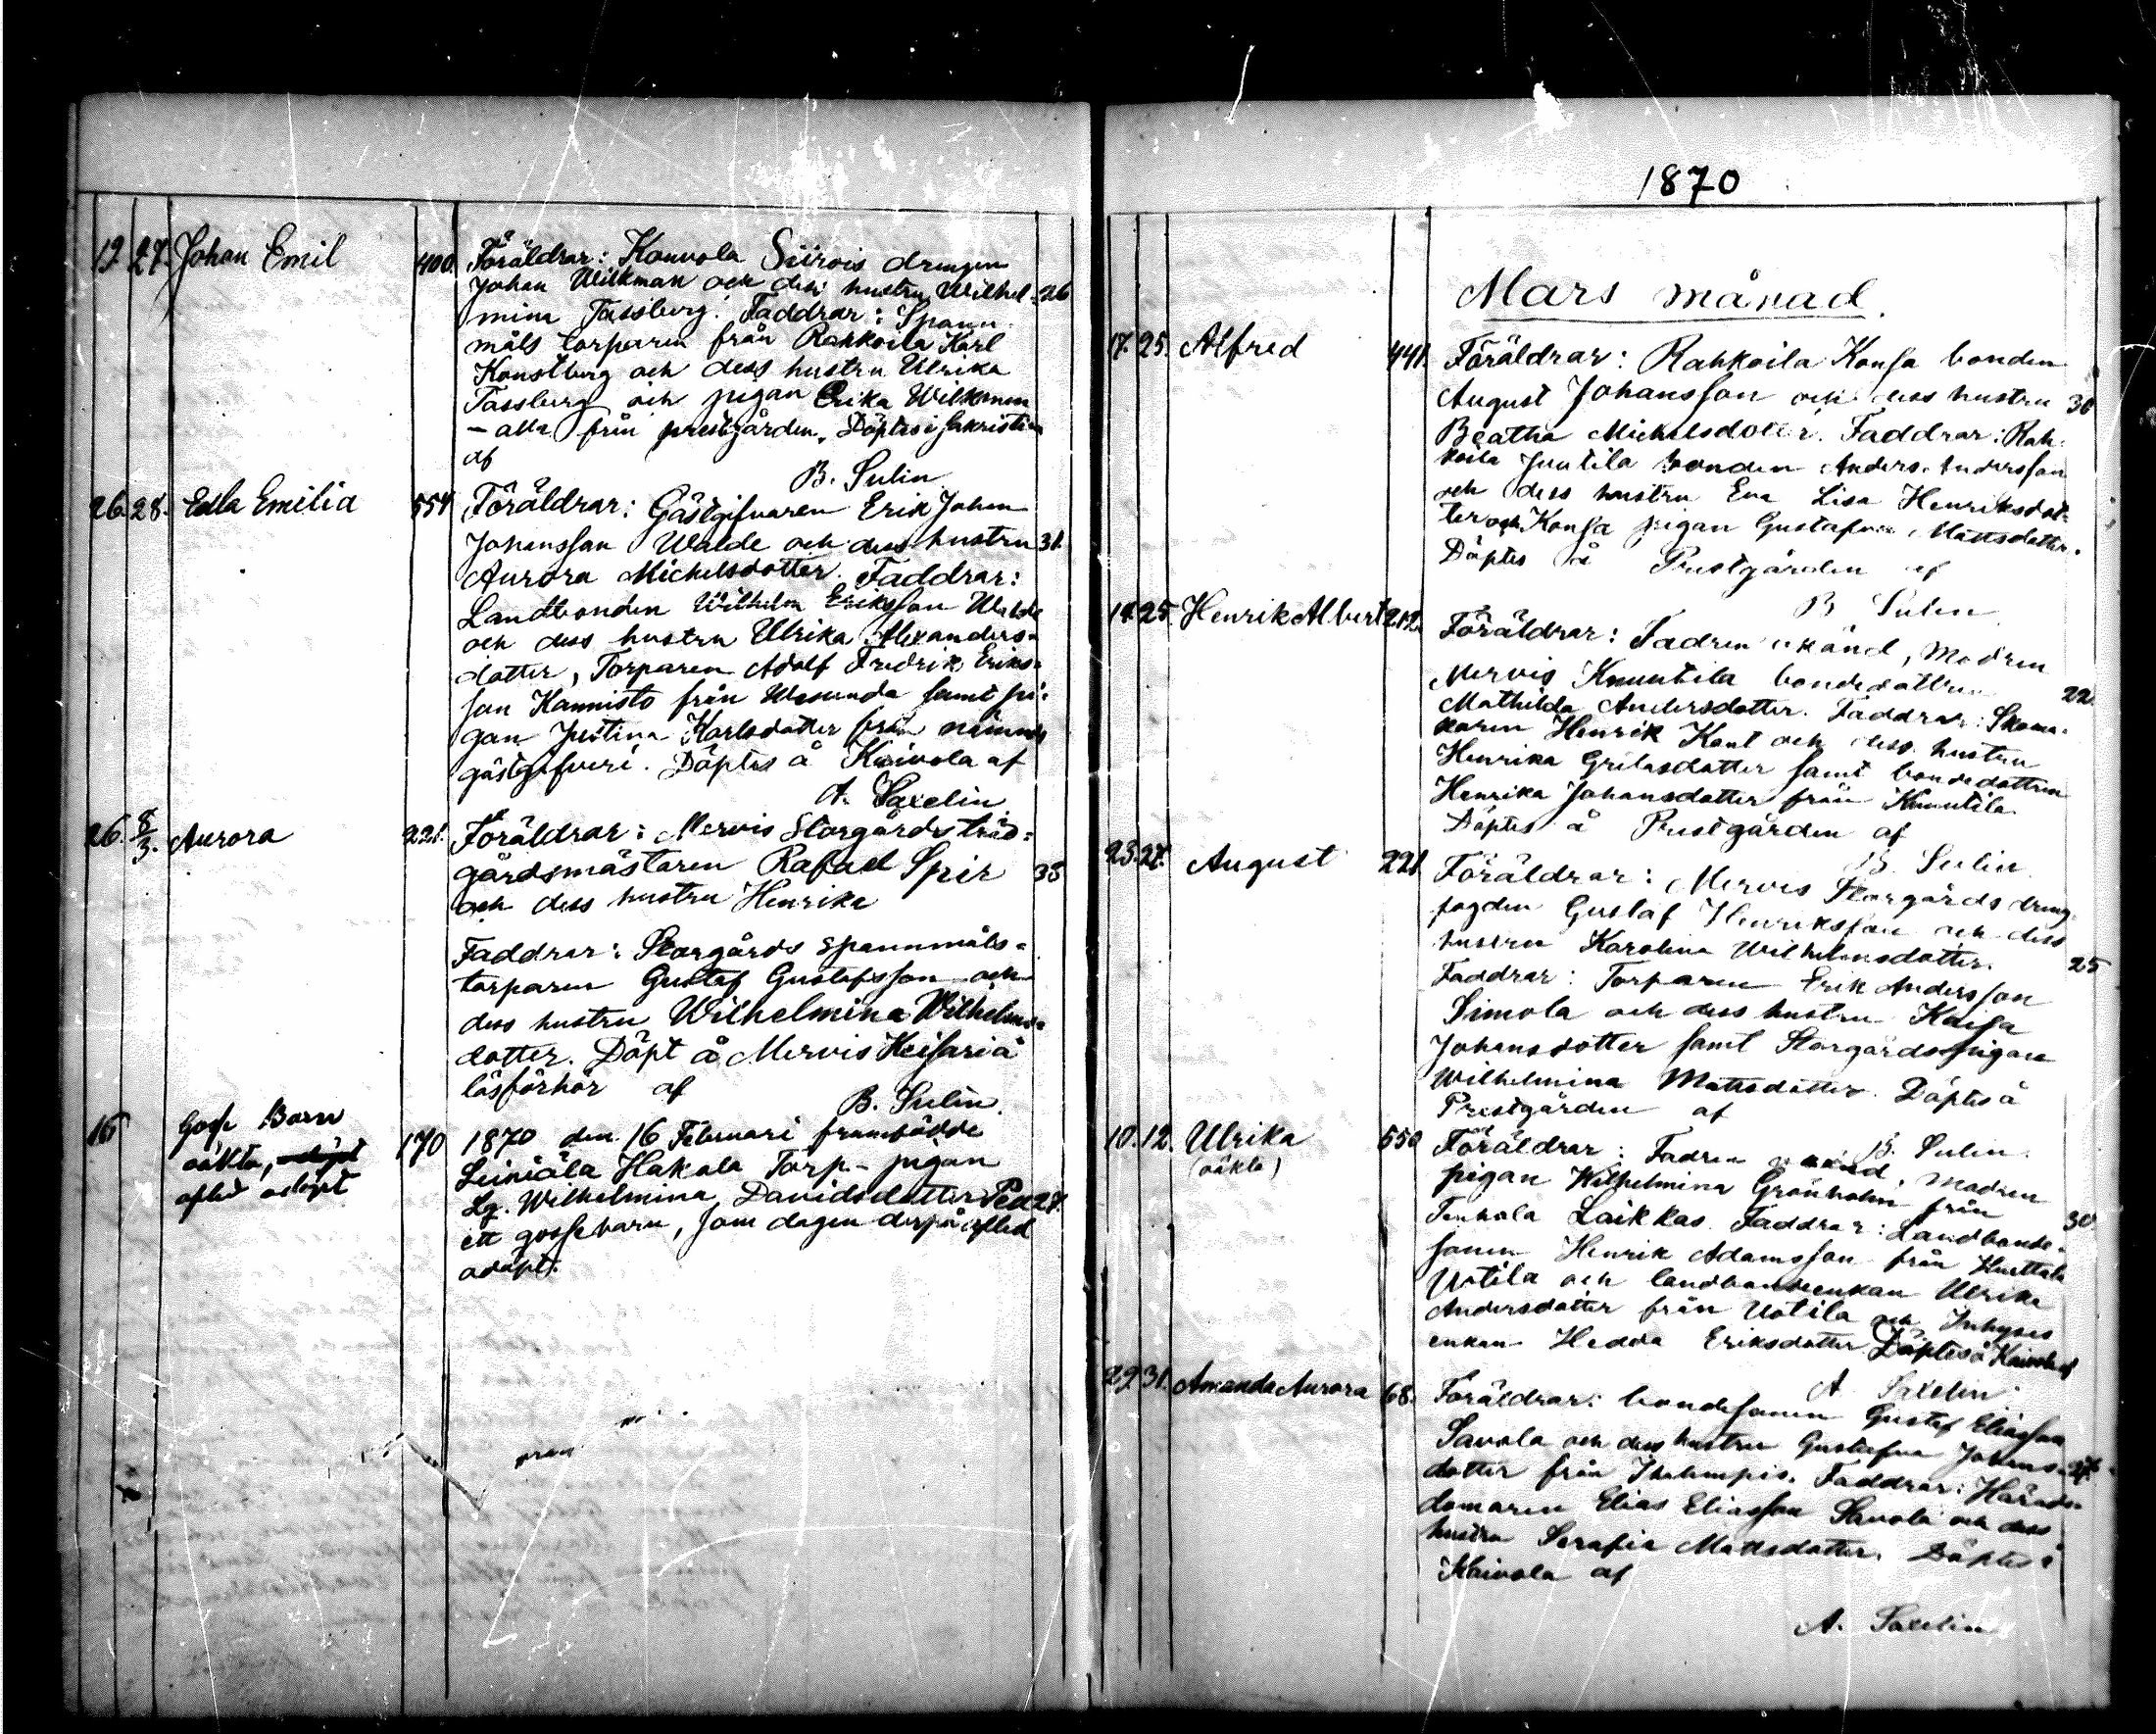 19 27. Johan Emil 400. Föräldrar: Konvola Siirois drengen
Johan Wilkman och dess hustru Wilhel- 26
mina Tassberg. Faddrar: Spann-
måls torparen från Rahkoila Karl
Konstberg och dess hustru Ulrika
Tassberg och pigan Erika Wilkman
— alla från prestgården. Döptes i sakristian
af
B. Sulin
26. 28. Edla Emilia 554 Föräldrar: Gästgifvaren Erik Johan
Johansson Walde och dess hustru 31.
Aurora Michelsdotter. Faddrar:
Landtbonden Wilhelm Eriksson Walde
och dess hustru Ulrika Alexanders-
dotter, Torparen Adolf Fredrik Eriks-
son Kannisto från Wesunda samt pi-
gan Justina Karlsdotter från nämnde
gästgifveri. Döptes å Kaivola af
A. Saxelin
26. 8/3. Aurora 221. Föräldrar: Mervis Storgårds träd-
gårdsmästaren Rafael Spir 33
och dess hustru Henrika
Faddrar: Storgårds spannmåls-
torparen Gustaf Gustafsson och
dess hustru Wilhelmina Wilhelms-
dotter. Döpt å Mervis Keisari å
läsförhör af
B. Sulin.
16 Gosse Barn 170 1870 den 16 Februari framfödde
oäkta,
Leiniälä Hakala Torp-pigan
afled odöpt
Lg. Wilhelmina Davidsdotter 27.
ett gossebarn, som dagen derpå afled
odöpt.
1870
Mars månad.
17. 25. Alfred 441. Föräldrar: Rahkoila Konsa bonden
August Johansson och dess hustru 30
Beatha Michelsdotter. Faddrar: Rah-
koila Juutila bonden Anders Andersson
och dess hustru Eva Lisa Henriksdot-
ter och Konsa pigan Gustafva Mattsdotter.
Döptes å Prestgården af
B Sulin
19. 25. Henrik Albert 212. Föräldrar: Fadren okänd, modren
Mervis Knuutila bondedottren 22.
Mathilda Andersdotter. Faddrar: Skoma-
karen Henrik Kant och dess hustru
Henrika Grelsdotter samt bondedottren
Henrika Johansdotter från Knuutila
Döptes å Prestgården af
B. Sulin
23. 27. August 221 Föräldrar: Mervis Storgårds dreng-
fogden Gustaf Henriksson och dess
hustru Karolina Wilhelmsdotter. 25
Faddrar: Torparen Erik Andersson
Simola och dess hustru Kaisa
Johansdotter samt Storgårds pigan
Wilhelmina Mattsdotter. Döptes å
Prestgården af
B. Sulin.
10. 12. Ulrika 550 Föräldrar: Fadren okänd, modren
(oäkta)
pigan Wilhelmina Grönholm från
Tenhola Laikkas. Faddrar: Landbonde- 30
sonen Henrik Adamsson från Hurttala
Uotila och landbondeenkan Ulrika
Andersdotter från Uotila och Inhyses
enkan Hedda Eriksdotter Döptes å Kaivola af
A Saxelin
29 31. Amanda Aurora 68. Föräldrar: bondesonen Gustaf Eliasson
Savola och dess hustru Gustafva Johans- 27.
dotter från Ihalempis. Faddrar: Härads-
domaren Elias Eliasson Savola och dess
hustru Serafia Mattsdotter. Döptes å
Kaivola af
A. Saxelin